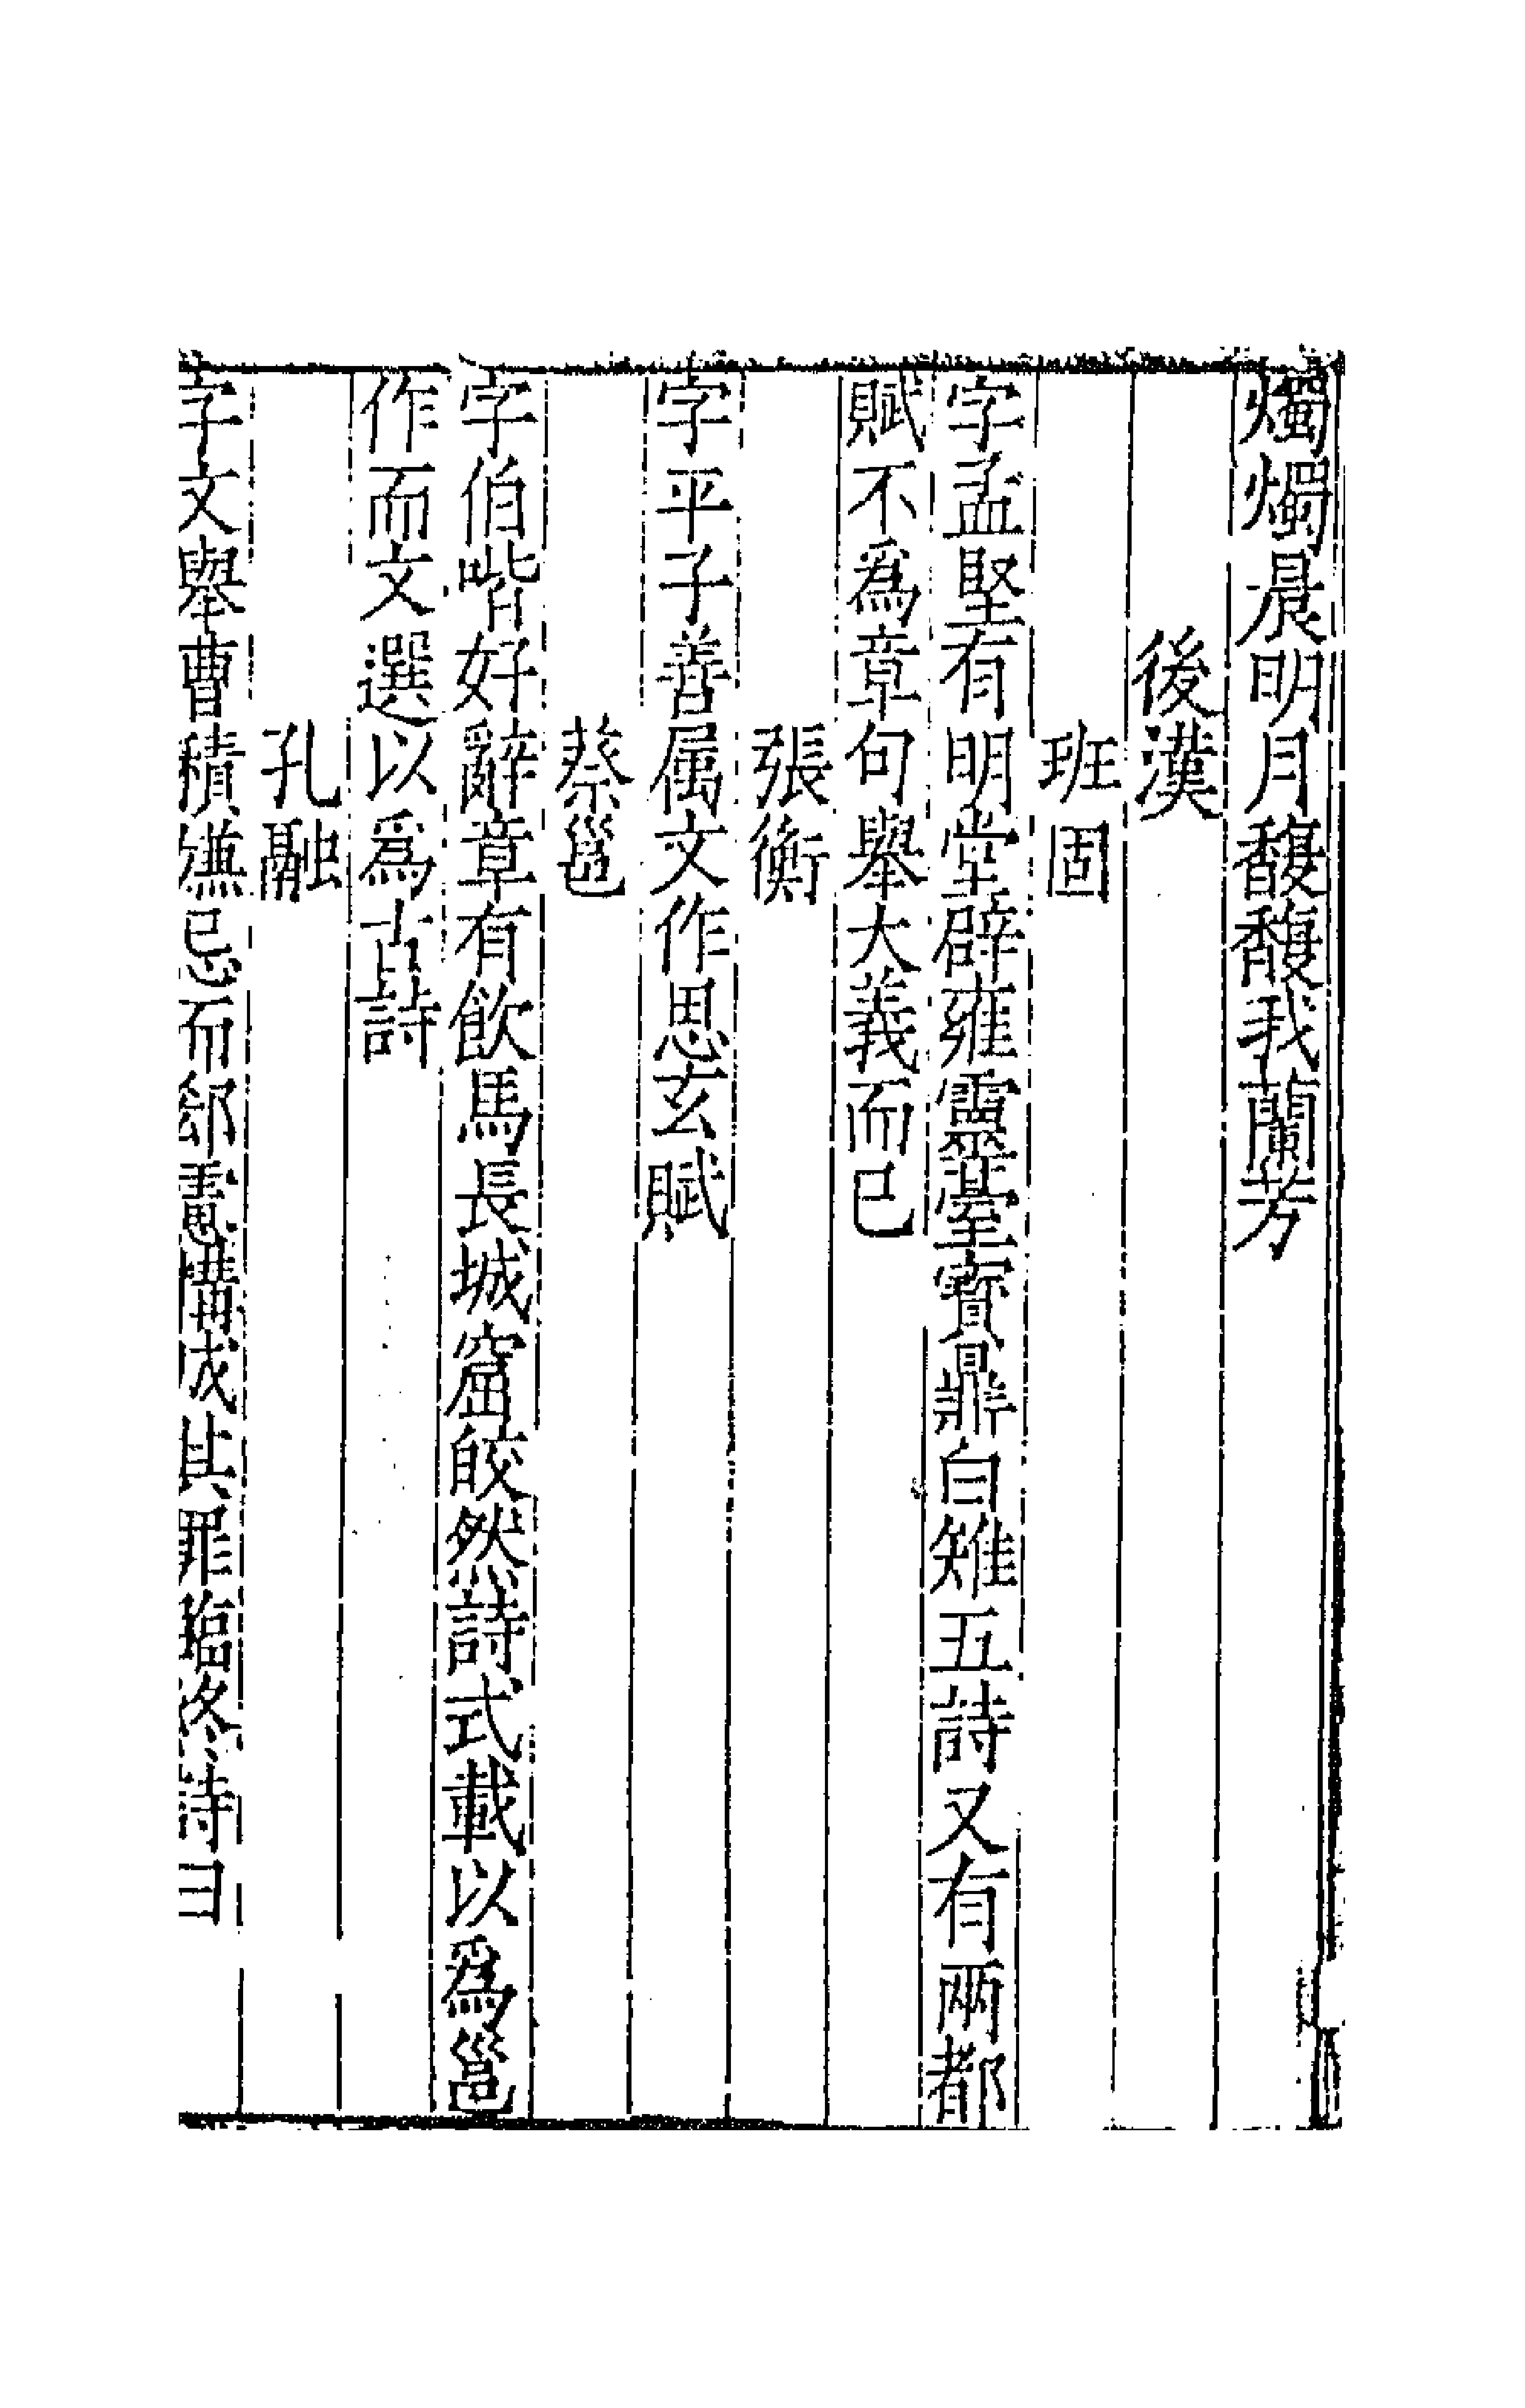 燭燭晨明月馥馥我蘭芳
後漢
班固
字孟堅有明堂辟雍靈臺寶鼎白雉五詩又有兩都
賦不爲章句舉大義而已
張衡
字平子善属文作思玄賦
蔡邕
字伯喈好辭章有飲馬長城窟皎然詩式載以爲邕
作而文選以爲古詩
孔融
字文舉曹積嫌忌而郄慮構成其罪臨終詩曰